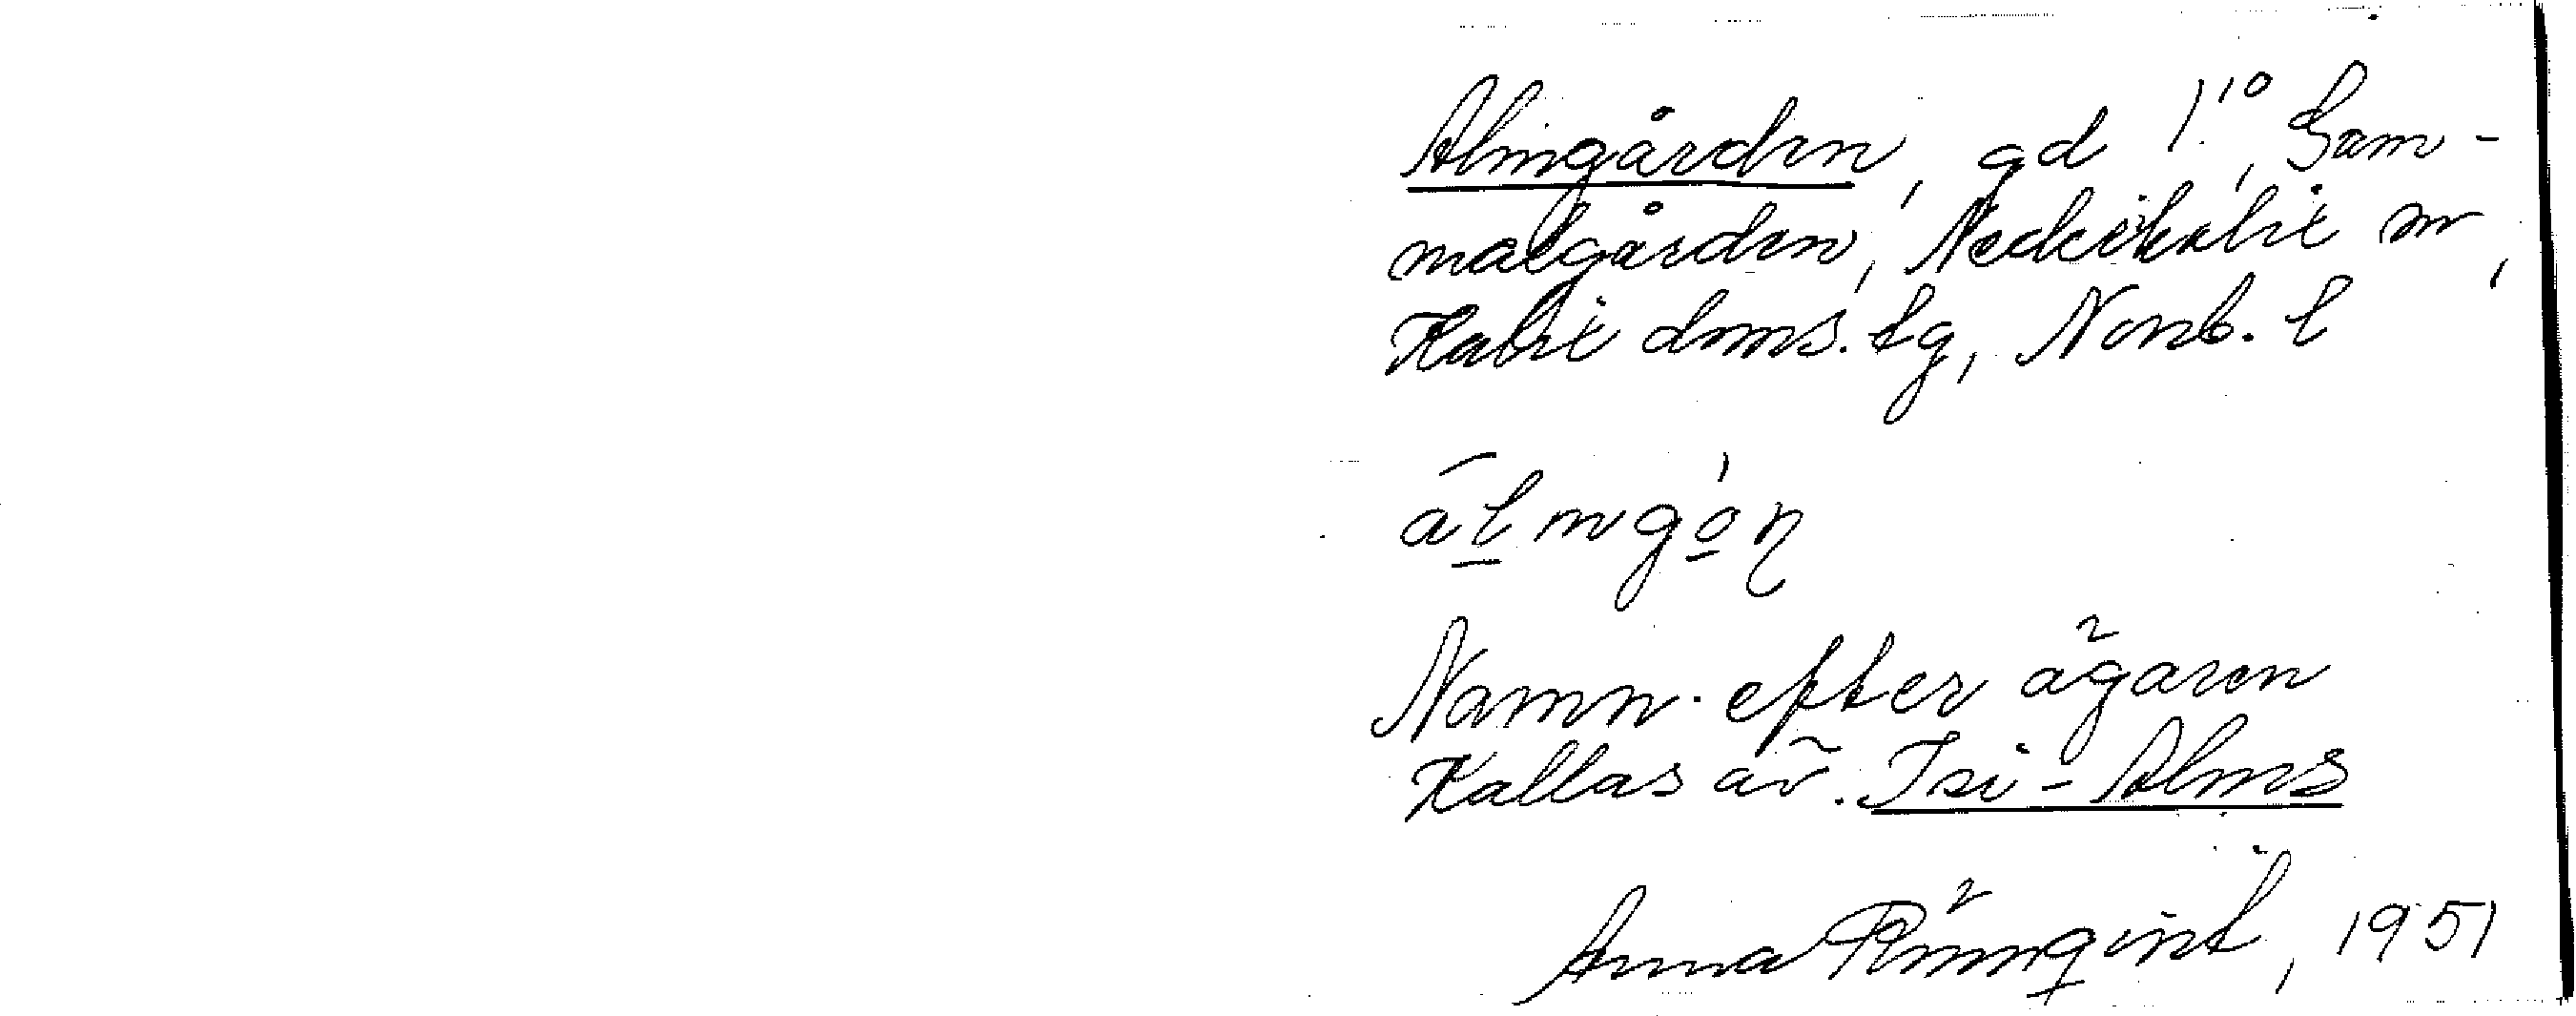 Almgården, gd 1¹⁰, Gam-
malgården, Nederkalix sn,
Kalix dms. tg, Norrb. l
álmgón
Namn. efter ägaren
Kallas äv. Isi-Alms
Anna Rönnqvist, 1951